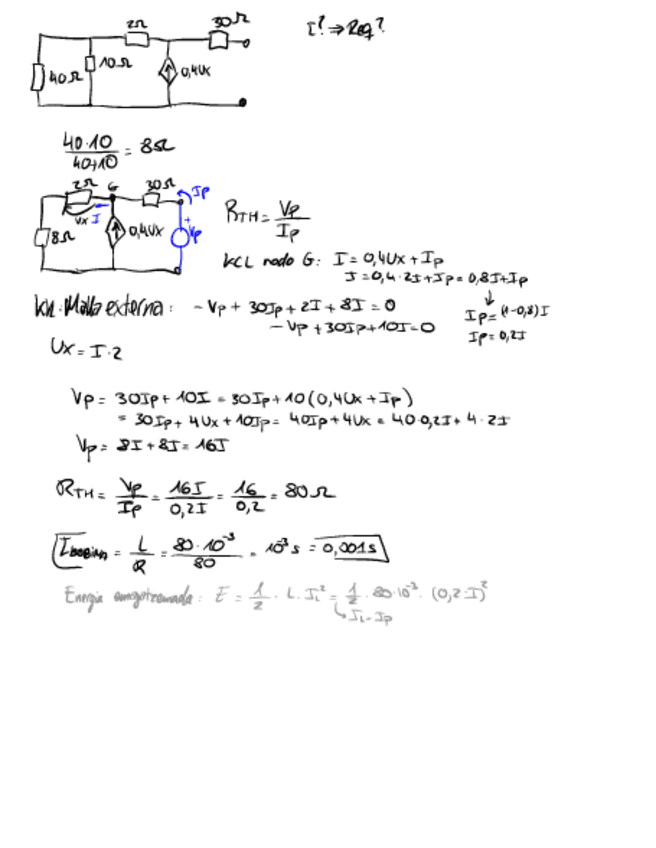 2Ω 30Ω I? → Req?
40Ω 10Ω 0,4Ux
40·10 / 40+10 = 8Ω
2Ω G 30Ω Ip
Ux I 8Ω 0,4Ux + Vp
RTH = Vp / Ip
KCL nodo G: I = 0,4Ux + Ip
I = 0,4·2I + Ip = 0,8I + Ip
Ip = (1-0,8)I
Ip = 0,2I
Malla externa: -Vp + 30Ip + 2I + 8I = 0
-Vp + 30Ip + 10I = 0
Ux = I·2
Vp = 30Ip + 10I = 30Ip + 10(0,4Ux + Ip)
= 30Ip + 4Ux + 10Ip = 40Ip + 4Ux = 40·0,2I + 4·2I
Vp = 8I + 8I = 16I
RTH = Vp / Ip = 16I / 0,2I = 16 / 0,2 = 80Ω
= L / R = 80·10⁻³ / 80 = 10⁻³ s = 0,001s
Energía : E = 1/2 · L · IL² = 1/2 · 80·10⁻³ · (0,2·I)²
↳ IL = Ip